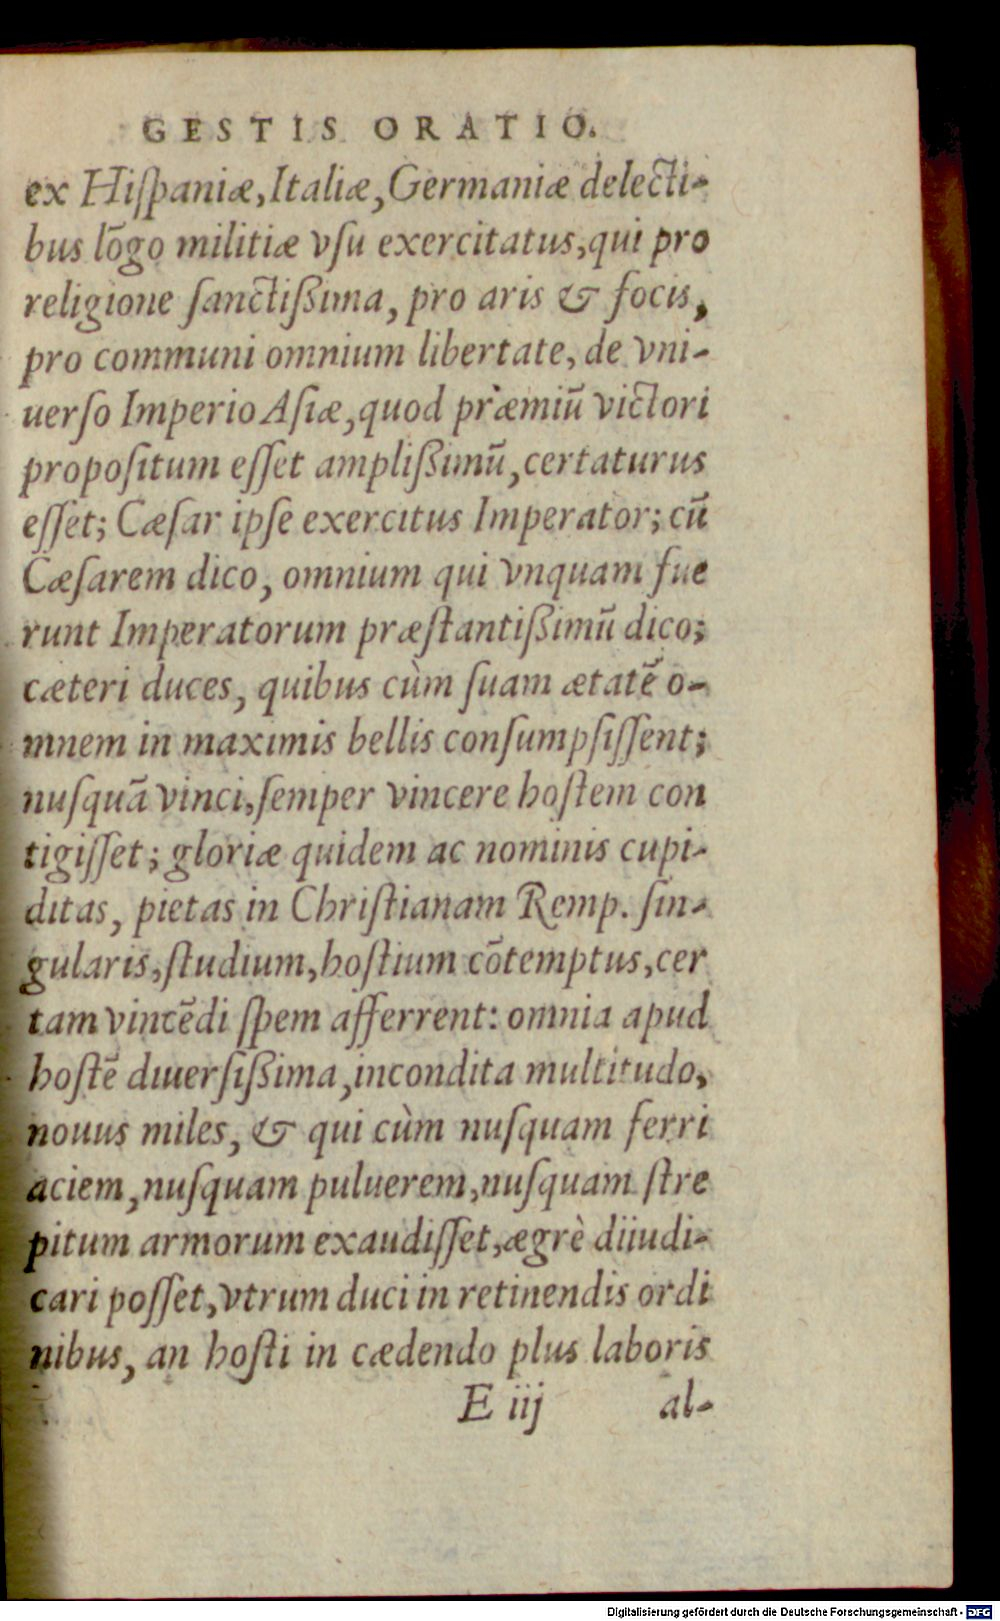 GESTIS ORATIO.
ex Hiſpaniæ, Italiæ, Germaniæ delecti-
bus lõgo militiæ vſu exercitatus, qui pro
religione ſanctiſſima, pro aris & focis,
pro communi omnium libertate, de vni-
uerſo Imperio Aſiæ, quod præmiũ victori
propoſitum eſſet ampliſſimũ, certaturus
eſſet; Cæſar ipſe exercitus Imperator; cũ
Cæſarem dico, omnium qui vnquam fue
runt Imperatorum præſtantiſſimũ dico;
cæteri duces, quibus cùm ſuam ætatẽ o-
mnem in maximis bellis conſumpſiſſent;
nuſquã vinci, ſemper vincere hoſtem con
tigiſſet; gloriæ quidem ac nominis cupi-
ditas, pietas in Chriſtianam Remp. ſin-
gularis, ſtudium, hoſtium cõtemptus, cer
tam vincẽdi ſpem afferrent: omnia apud
hoſtẽ diuerſiſſima, incondita multitudo,
nouus miles, & qui cùm nuſquam ferri
aciem, nuſquam puluerem, nuſquam ſtre
pitum armorum exaudiſſet, ægrè diiudi-
cari poſſet, vtrum duci in retinendis ordi
nibus, an hoſti in cædendo plus laboris
E iij al-
Digitalisierung gefördert durch die Deutsche Forschungsgemeinschaft - DFG